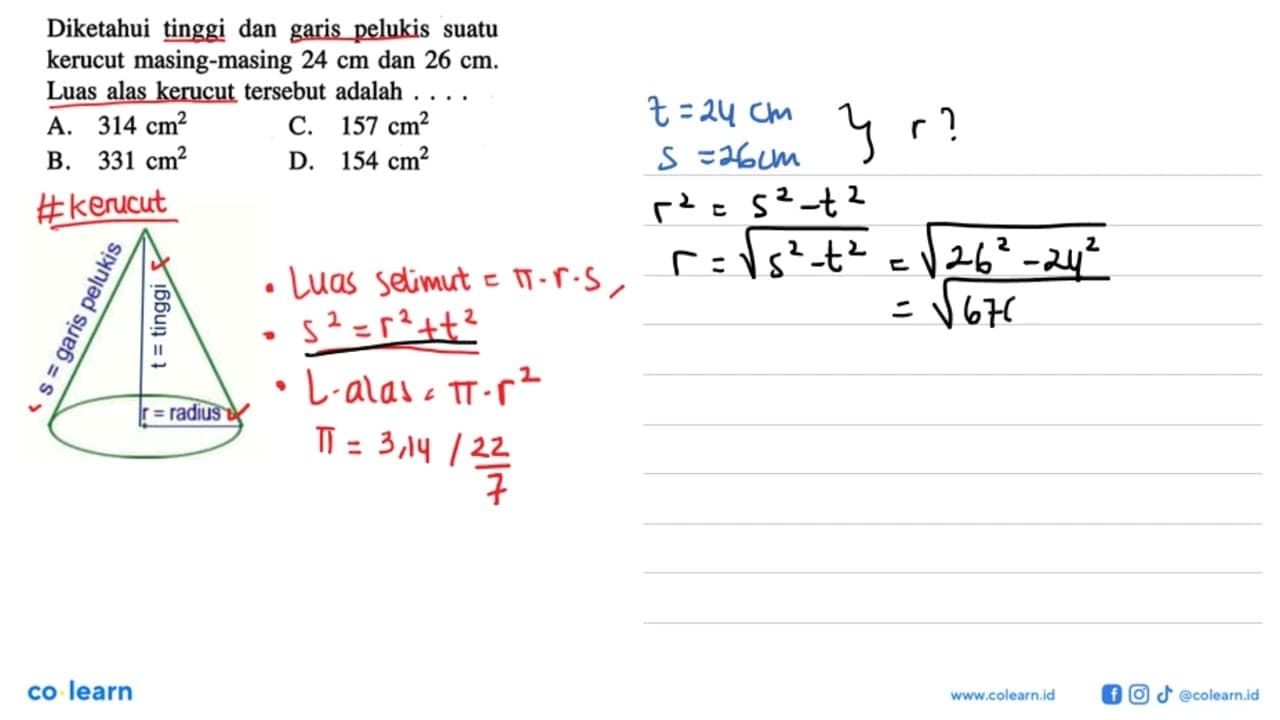 Diketahui tinggi dan garis pelukis suatu
kerucut masing-masing 24 cm dan 26 cm.
Luas alas kerucut tersebut adalah . . . .
A. 314 cm² C. 157 cm²
B. 331 cm² D. 154 cm²
#kerucut
s = garis pelukis
t = tinggi
r = radius
• Luas selimut = π.r.s
• s² = r² + t²
• L.alas = π.r²
π = 3,14 / 22/7
t = 24 cm
s = 26 cm
} r?
r² = s² - t²
r = √s² - t² = √26² - 24²
= √67
co learn
www.colearn.id @colearn.id